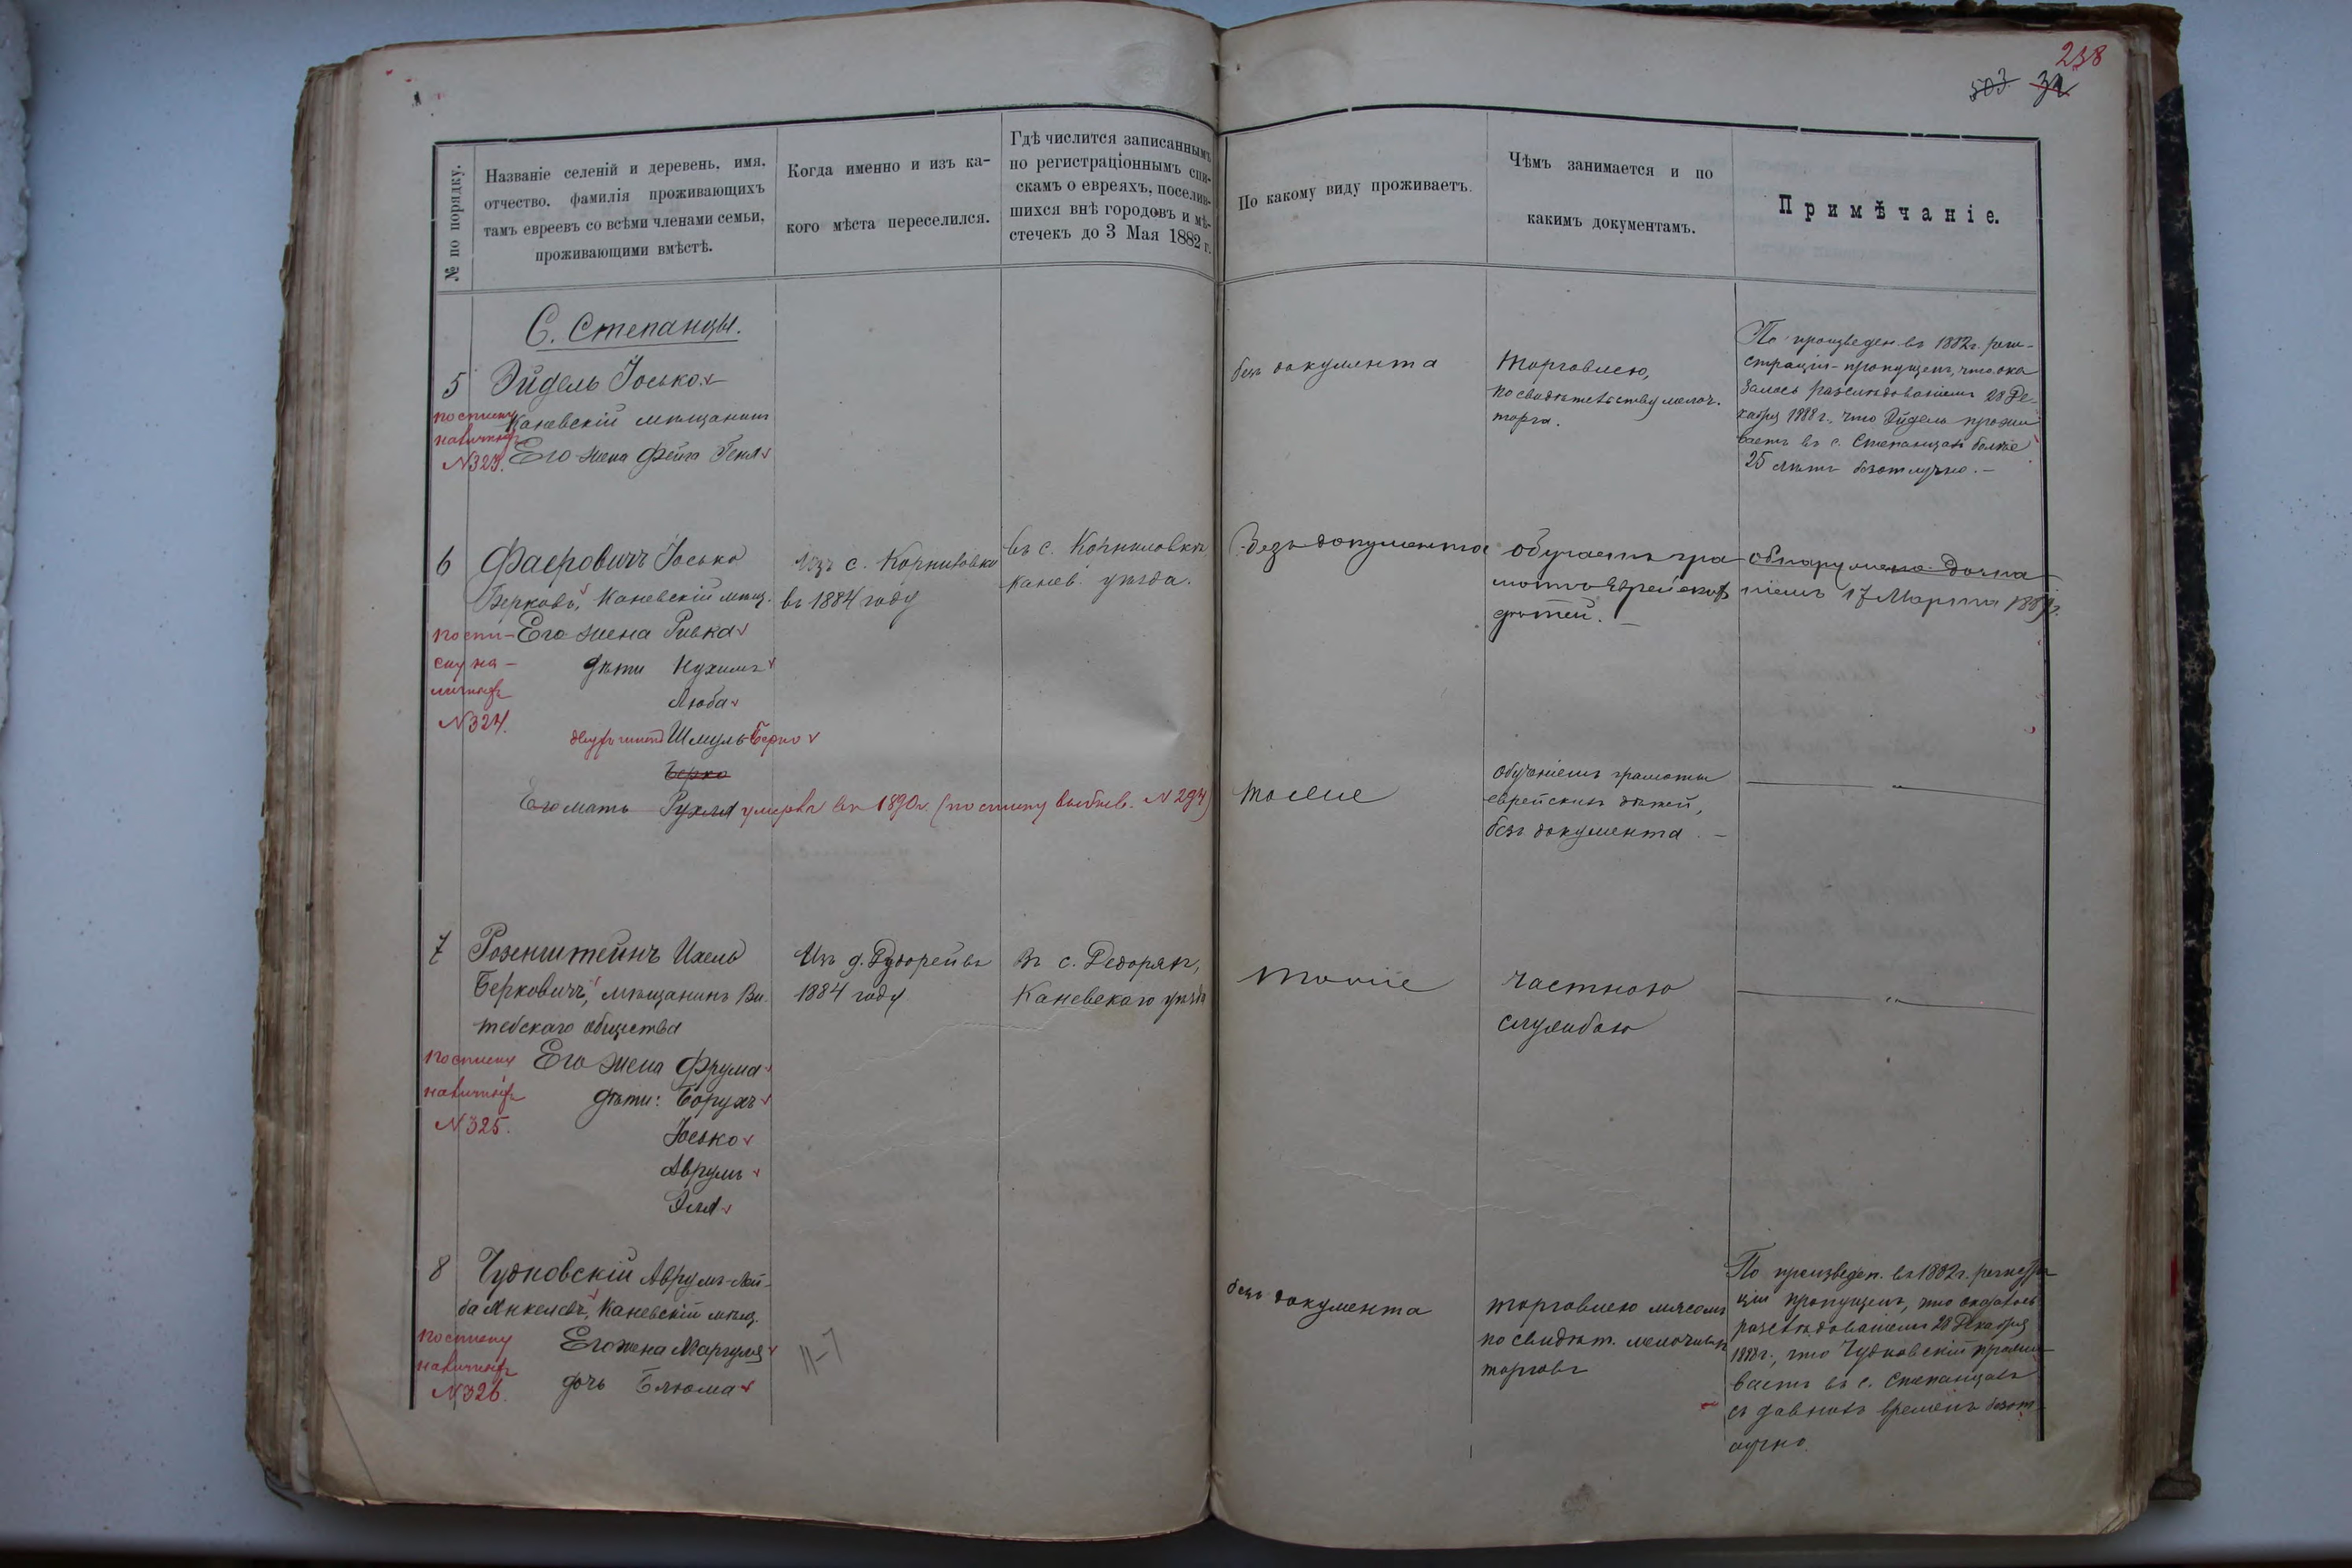 238
503 32
№ по порядку.
Названіе селеній и деревень, имя,
отчество, фамилія проживающихъ
тамъ евреевъ со всѣми членами семьи,
проживающими вмѣстѣ.
Когда именно и изъ ка-
кого мѣста переселился.
Гдѣ числится записаннымъ
по регистраціоннымъ спи-
скамъ о евреяхъ, поселив-
шихся внѣ городовъ и мѣ-
стечекъ до 3 Мая 1882 г.
По какому виду проживаетъ.
Чѣмъ занимается и по
какимъ документамъ.
Примѣчаніе.
С. Степанцы.
5 Эйдель Іосько
Каневскій мѣщанинъ
Его жена Фейга Геня
по списку
наличныхъ
№323.
безъ документа
Торговлею,
по свидѣтельству мелоч.
торга.
По произведен. въ 1882г. реги-
страціи пропущенъ, что ока
залось разслѣдованіемъ 28 Де-
кабря 1888 г., что Эйдель прожи
ваетъ въ с. Степанцахъ болѣе
25 лѣтъ безотлучно.
6 Фаеровичъ Іосько
Берковъ, Каневскій мѣщ.
Его жена Ривка
дѣти Нухимъ
Люба
Шмуль-Берко
Берко
Его мать Рухля умерла въ 1890г. (по списку выбыв. №294)
по спи-
ску на-
личныхъ
№324.
Изъ с. Корниловки
въ 1884 году
въ с. Корниловкѣ
Канев. уѣзда.
Безъ документа
обучаетъ гра
мотѣ еврейскихъ
дѣтей.
обнаружено дозна
ніемъ 17 Марта
тоже
обученіемъ грамоты
еврейскихъ дѣтей,
безъ документа.
— " —
7 Розенштейнъ Ихель
Берковичъ, мѣщанинъ Ви
тебскаго общества
Его жена Фрума
дѣти: Борухъ
Іосько
Аврумъ
Эля
по списку
наличныхъ
№325.
Изъ д. въ
1884 году
Въ с.
Каневскаго уѣзда
тоже
частною
службою
— " —
8 Чудновскій Аврумъ-Лей-
ба Янкелевъ, Каневскій мѣщ.
Его жена Маргуля
дочь Блюма
по списку
наличныхъ
№326.
11-7
безъ документа
торговлею мясомъ
по свидѣт. мелочныхъ
торговъ
По произведен. въ 1882г. регистра
ціи пропущенъ, что оказалось
разслѣдованіемъ 28 Декабря
1888г., что Чудновскій прожи
ваетъ въ с. Степанцахъ
съ давнихъ временъ безот
лучно.